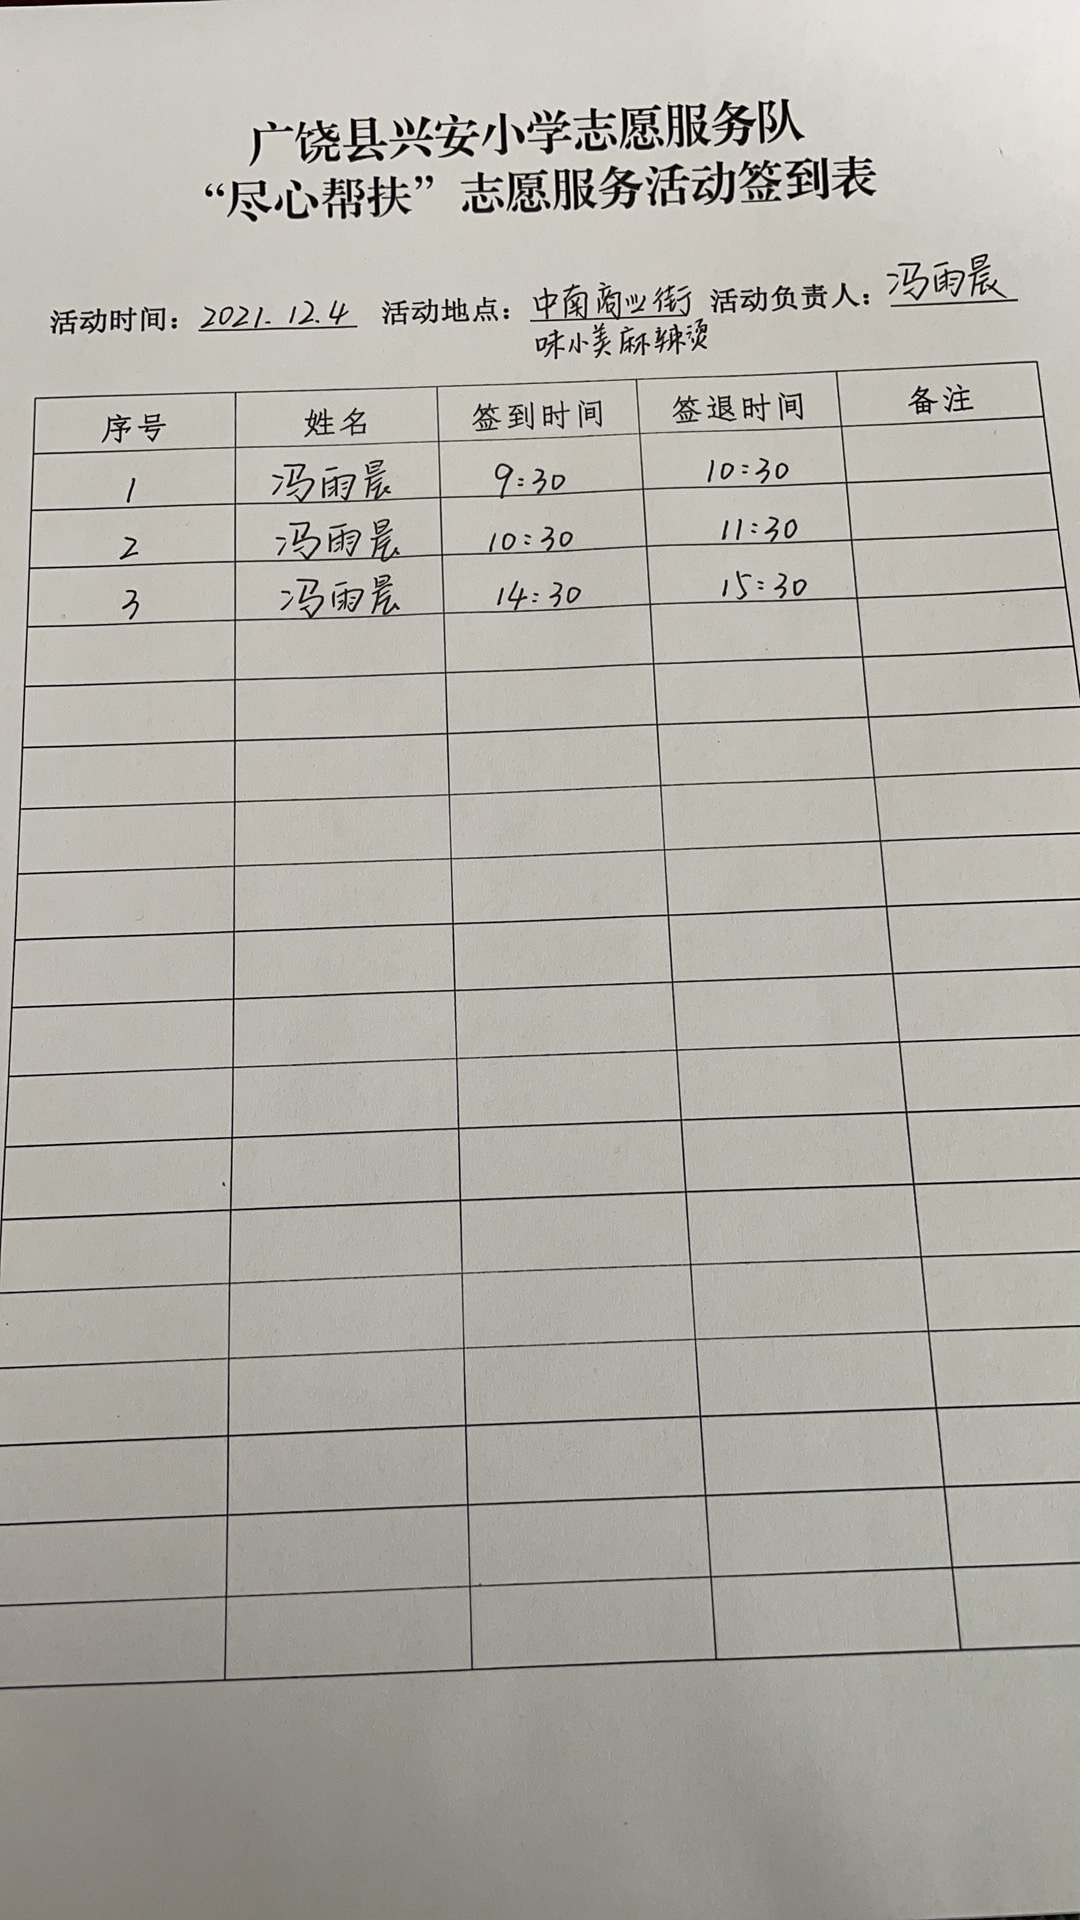 广饶县兴安小学志愿服务队
“尽心帮扶”志愿服务活动签到表
活动时间：2021.12.4 活动地点：中南商业街 活动负责人：冯雨晨
味小美麻辣烫
序号 姓名 签到时间 签退时间 备注
1 冯雨晨 9:30 10:30
2 冯雨晨 10:30 11:30
3 冯雨晨 14:30 15:30